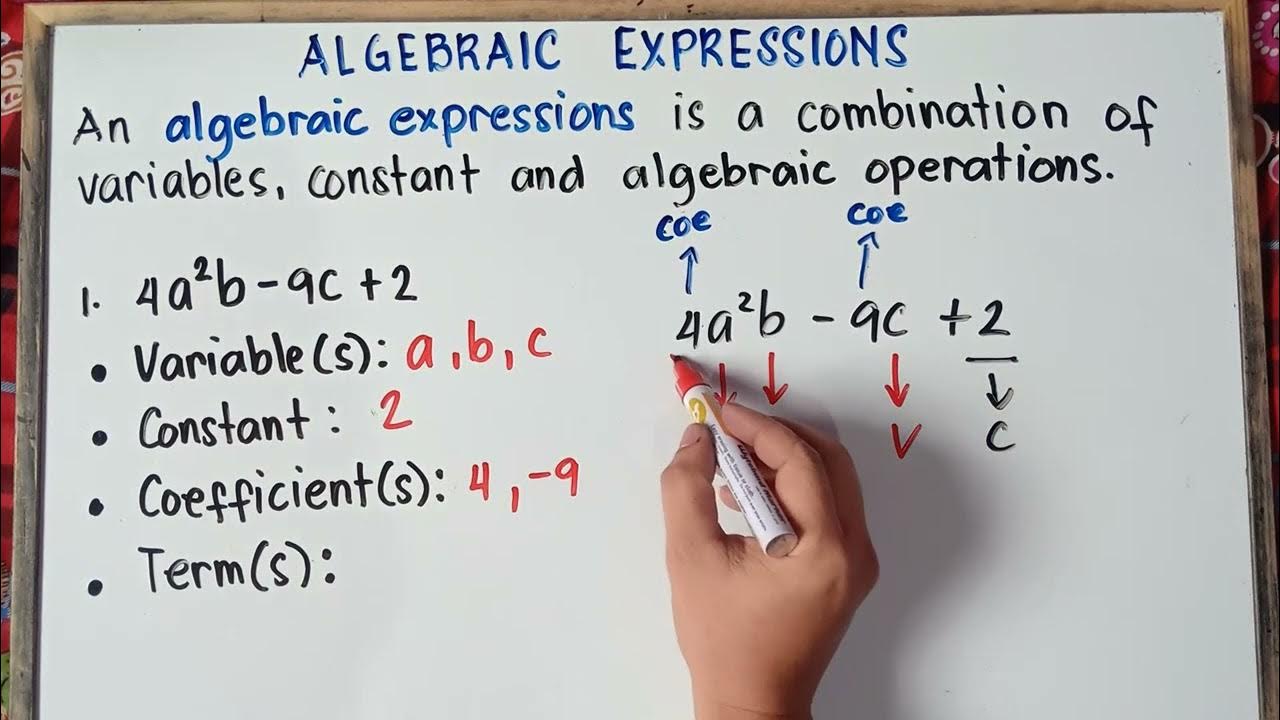 ALGEBRAIC EXPRESSIONS
An algebraic expressions is a combination of
variables, constant and algebraic operations.
1. 4a²b - 9c + 2
• Variable(s): a, b, c
• Constant : 2
• Coefficient(s): 4, -9
• Term(s):
coe coe
4a²b - 9c + 2
v c